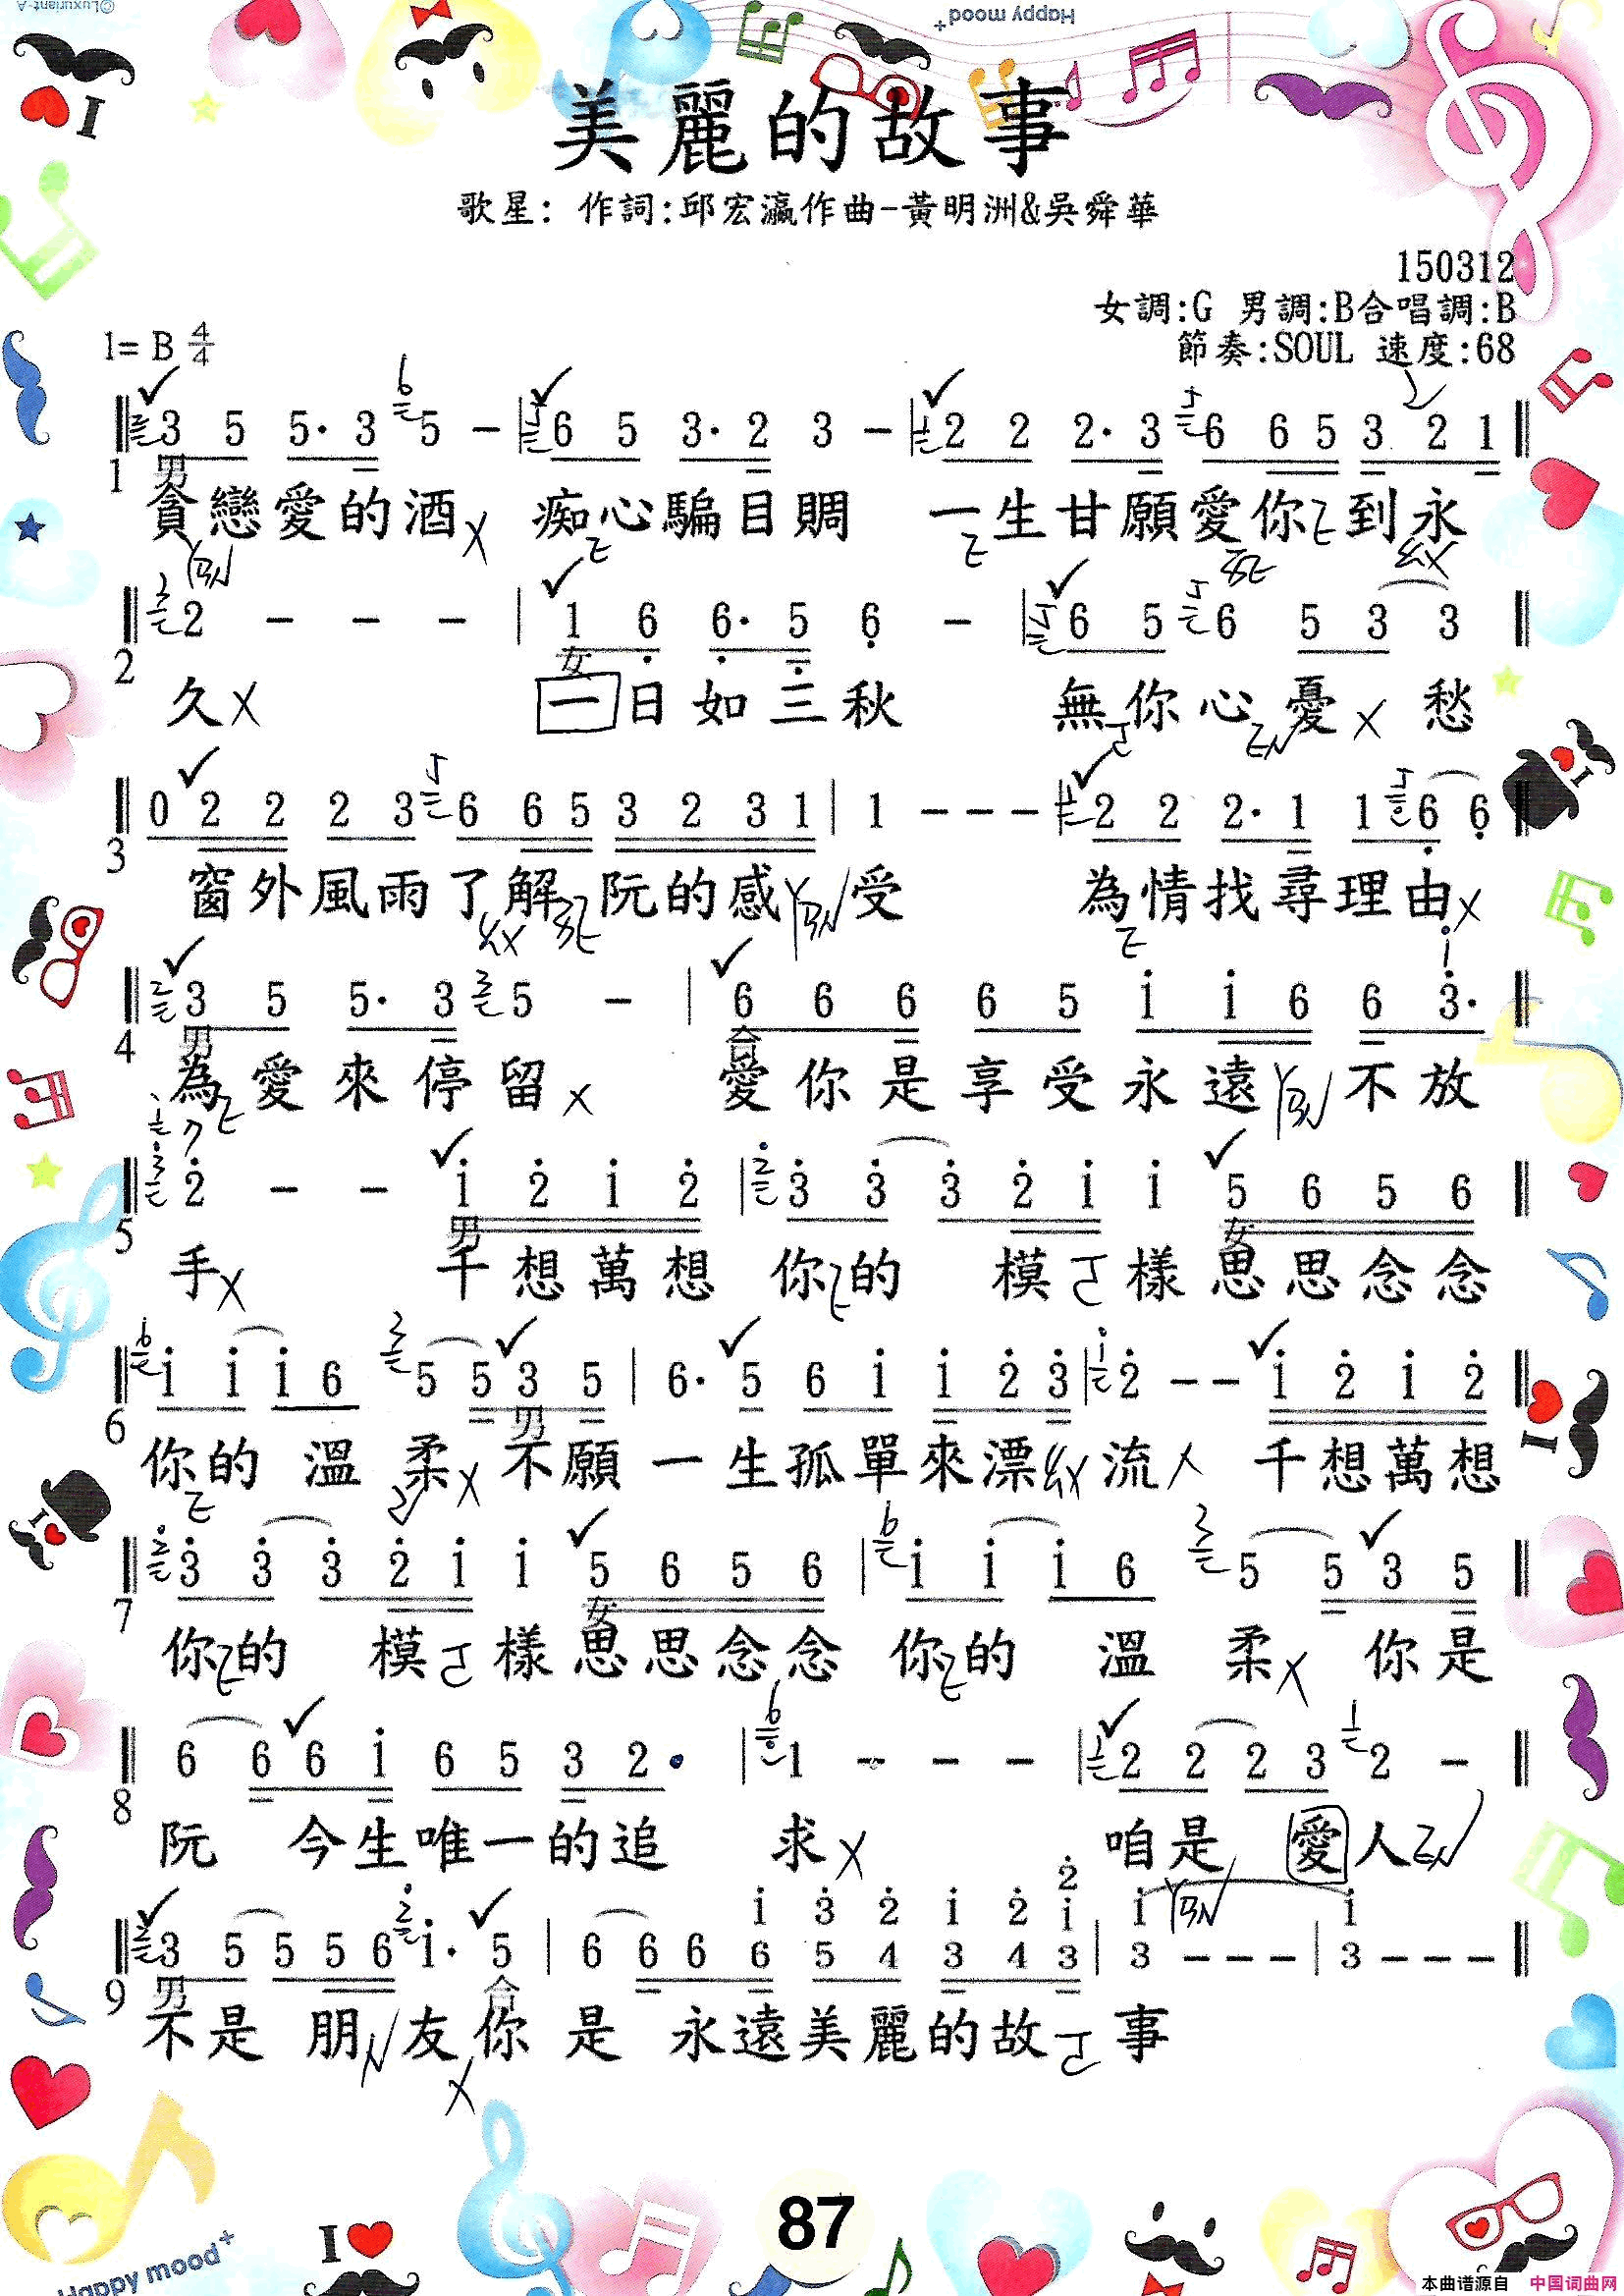 ©Luxuriant-A
Happy mood+
I
美麗的故事
歌星: 作詞:邱宏瀛作曲-黃明洲&吳舜華
150312
女調:G 男調:B合唱調:B
1= B 4/4
節奏:SOUL 速度:68
3 5 5· 3 5 - | 6 5 3· 2 3 - | 2 2 2· 3 6 6 5 3 2 1
1 男
貪戀愛的酒 痴心騙目睭 一生甘願愛你到永
2 - - - | 1 6 6· 5 6 - | 6 5 6 5 3 3
2 女
久 一日如三秋 無你心憂愁
0 2 2 2 3 6 6 5 3 2 3 1 | 1 - - - | 2 2 2· 1 1 6 6
3
窗外風雨了解阮的感受 為情找尋理由
3 5 5· 3 5 - | 6 6 6 6 5 i i 6 6 3·
4 男 合
為愛來停留 愛你是享受永遠不放
2 - - i 2 i 2 | 3 3 3 2 i i 5 6 5 6
5 男 女
手 千想萬想 你的 模樣思思念念
i i i 6 5 5 3 5 | 6· 5 6 i i 2 3 | 2 - - i 2 i 2
6 男
你的 溫柔 不願一生孤單來漂流 千想萬想
3 3 3 2 i i 5 6 5 6 | i i i 6 5 5 3 5
7 女
你的 模樣思思念念 你的 溫柔 你是
6 6 6 i 6 5 3 2· | 1 - - - | 2 2 2 3 2 -
8
阮 今生唯一的追求 咱是 愛人
i 3 2 i 2 2 i i i
3 5 5 5 6 i· 5 | 6 6 6 6 5 4 3 4 3 | 3 - - - | 3 - - -
9 男 合
不是 朋友你是 永遠美麗的故事
87
I
Happy mood+
本曲谱源自 中国词曲网